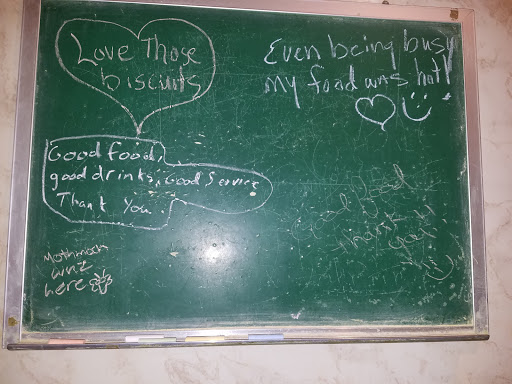 Love Those
biscuits
Even being busy
my food was hot!
Good food,
good drinks, Good Service
Thank You!
Good food
thank
you
Mothman
wuz
here